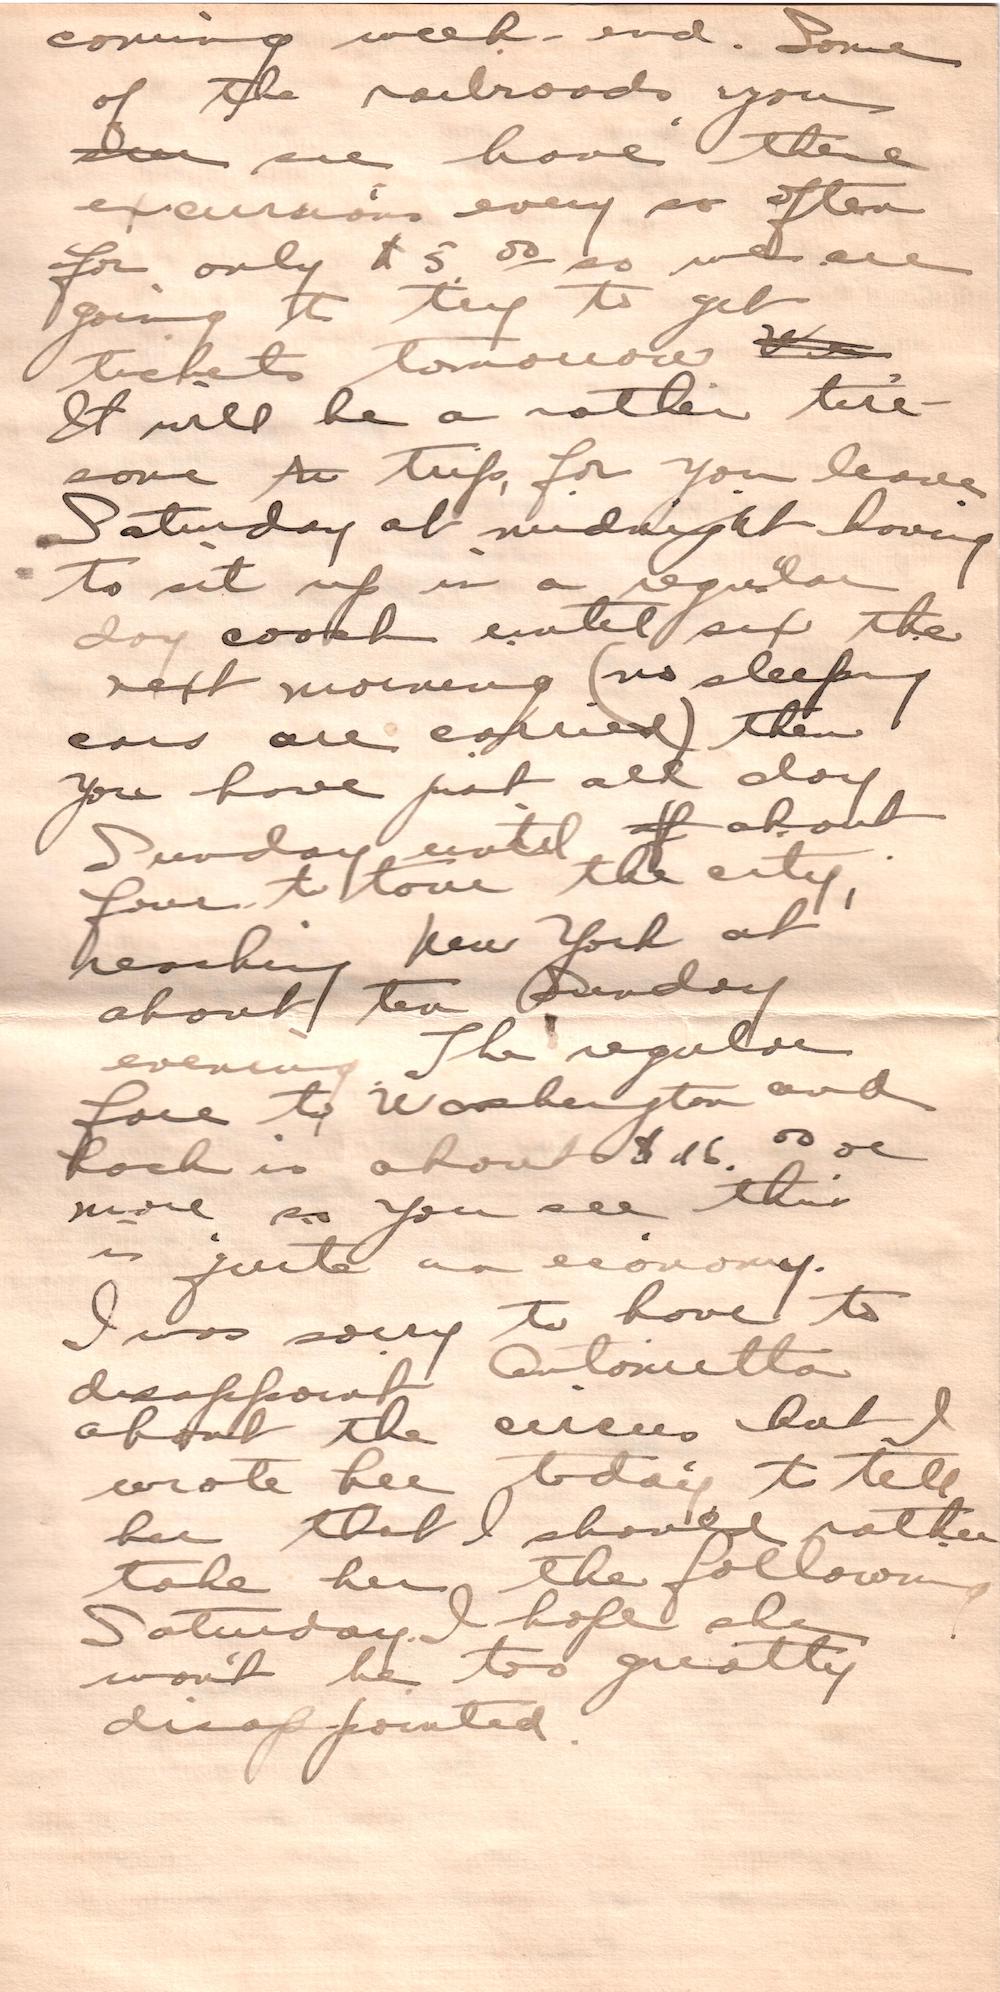 coming week-end. Some
of the railroads, you
see have these
excursions every so often
for only $5.00 so we are
going to try to get
tickets tomorrow
It will be a rather tire-
some trip, for you leave
Saturday at midnight having
to sit up in a regular
day coach until six the
next morning (no sleeping
cars are carried) then
you have just all day
Sunday until about
four to tour the city,
reaching New York at
about ten Sunday
evening. The regular
fare to Washington and
back is about $16.00 or
more so you see this
is quite an economy.
I was sorry to have to
disappoint Antonietta
about the circus but I
wrote her today to tell
her that I should rather
take her the following
Saturday. I hope she
won't be too greatly
disappointed.